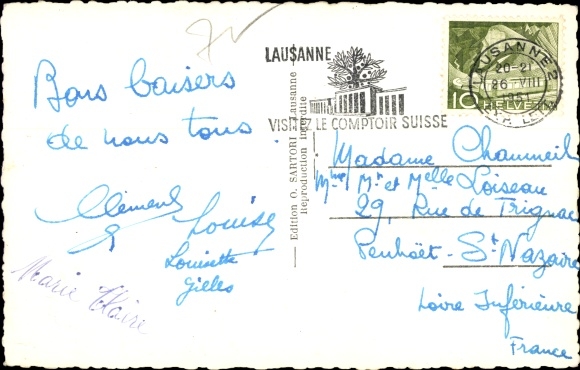 Bons baisers
de nous tous
Clément
Louise
Louisette
Gilles
Marie Claire
Edition O. SARTORI Lausanne
Reproduction interdite
LAUSANNE
VISITEZ LE COMPTOIR SUISSE
LAUSANNE 2
20-21
26 VIII
1951
10 HELVETIA
Madame Chaumeil
Mme Mr et Melle Loiseau
29, Rue de Trignac
Penhöet - St Nazaire
Loire Inférieure
France